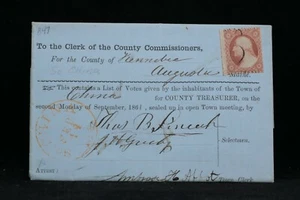 To the Clerk of the County Commissioners,
For the County of Kennebec
Augusta
This contains a List of Votes given by the inhabitants of the Town of
China for COUNTY TREASURER, on the
second Monday of September, 1861, sealed up in open Town meeting, by
Thos B. Lincoln
Selectmen.
Attest:
Ambrose H. Abbot Town Clerk